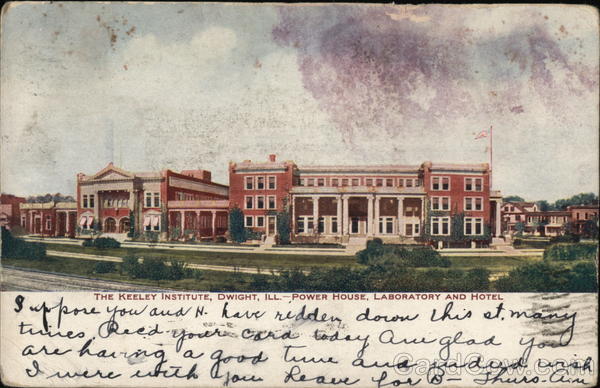 THE KEELEY INSTITUTE, DWIGHT, ILL.—POWER HOUSE, LABORATORY AND HOTEL
Suppose you and H. have redden down this st. many
times Recd your card today Am glad you
are having a good time and only wish
I were with you Leave for B Thurs. Am
CardCow.com